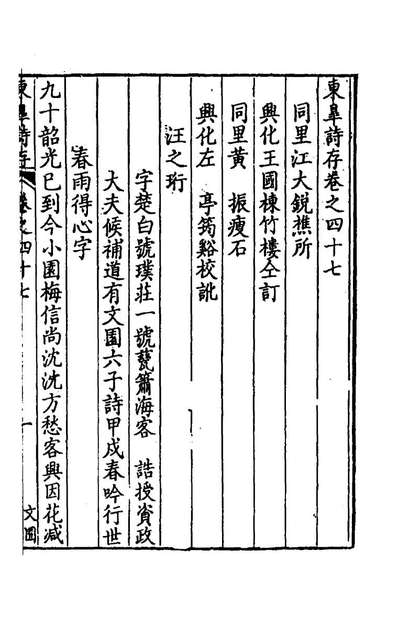 東皐詩存卷之四十七
同里江大銳樵所
興化王國棟竹樓仝訂
同里黃　振瘦石
興化左　亭筠谿校訛
汪之珩
字楚白號璞莊一號甓簫海客　誥授資政
大夫候補道有文園六子詩甲戍春吟行世
春雨得心字
九十韶光已到今小園梅信尚沈沈方愁客興因花減
東皐詩存　卷之四十七　一　文園